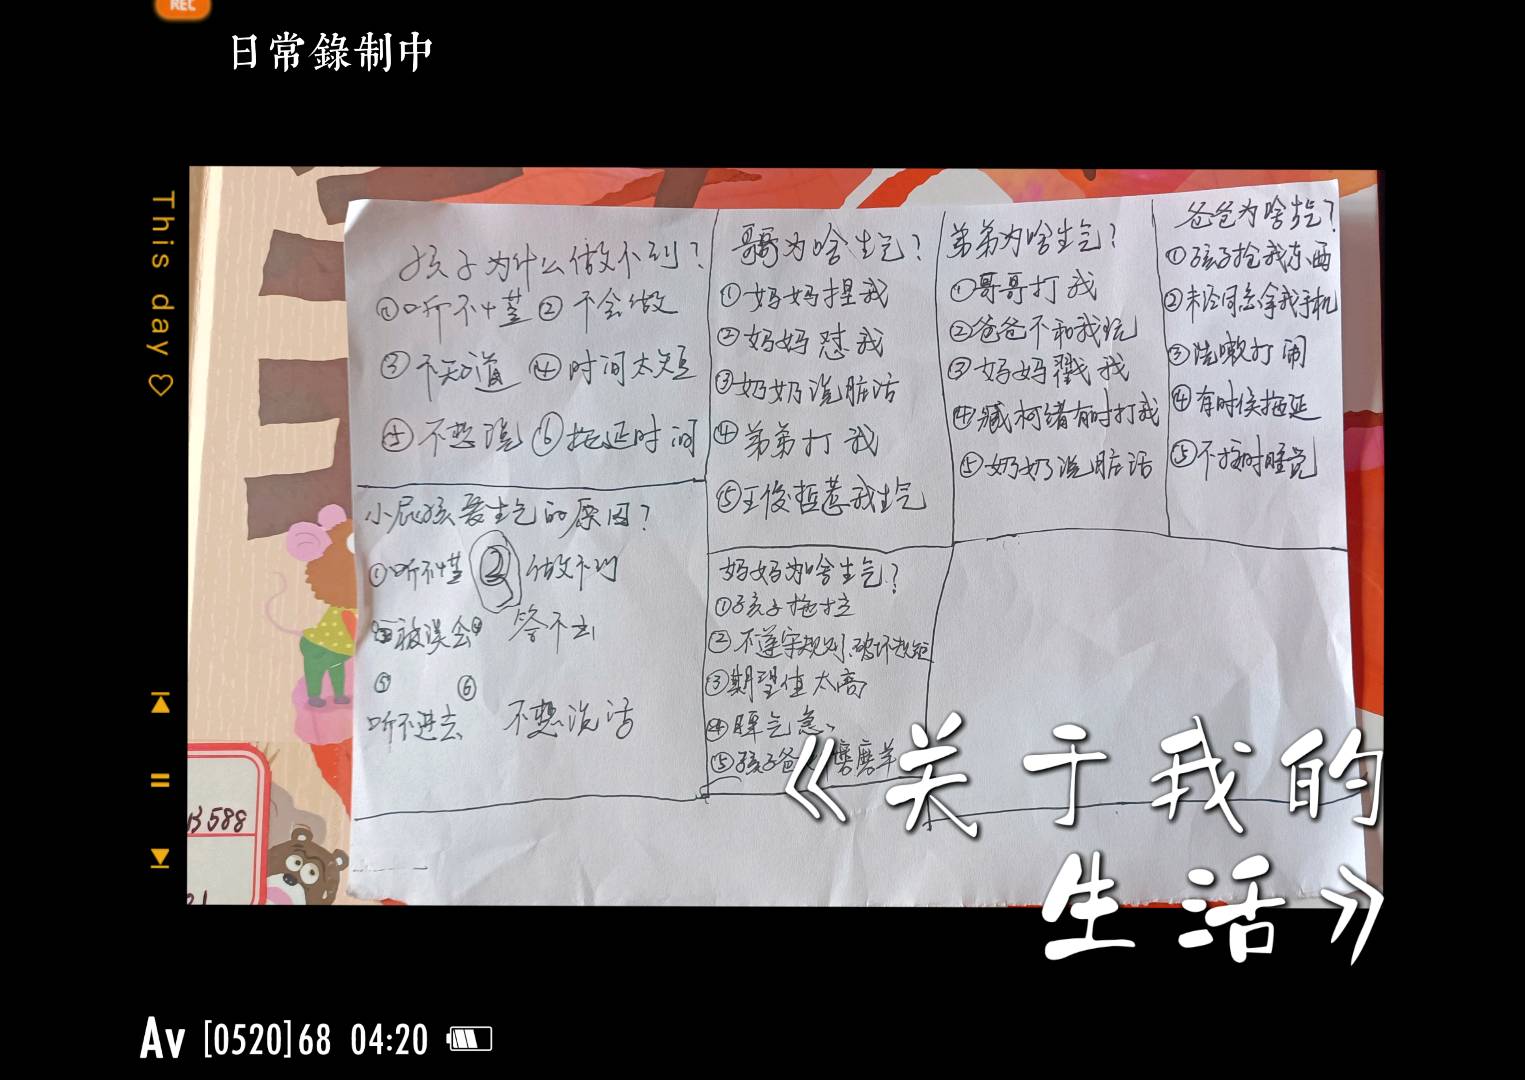 REC
日常錄制中
This day ♡
孩子为什么做不到？
①听不懂 ②不会做
③不知道 ④时间太短
⑤不想说 ⑥拖延时间
小屁孩爱生气的原因？
①听不懂 ② 做不到
③被误会④ 答不出
⑤ ⑥
听不进去 不想说话
哥哥为啥生气？
①妈妈捏我
②妈妈怼我
③奶奶说脏话
④弟弟打我
⑤王俊哲惹我生气
妈妈为啥生气？
①孩子拖拉
②不遵守规则、破坏规矩
③期望值太高
④脾气急、
⑤孩子爸 磨磨羊
弟弟为啥生气？
①哥哥打我
②爸爸不和我玩
③妈妈戳我
④臧柯绪有时打我
⑤奶奶说脏话
爸爸为啥生气？
①孩子抢我东西
②未经同意拿我手机
③浩嗷打闹
④有时侯拖延
⑤不按时睡觉
B588
《关于我的
生活》
Av [0520]68 04:20